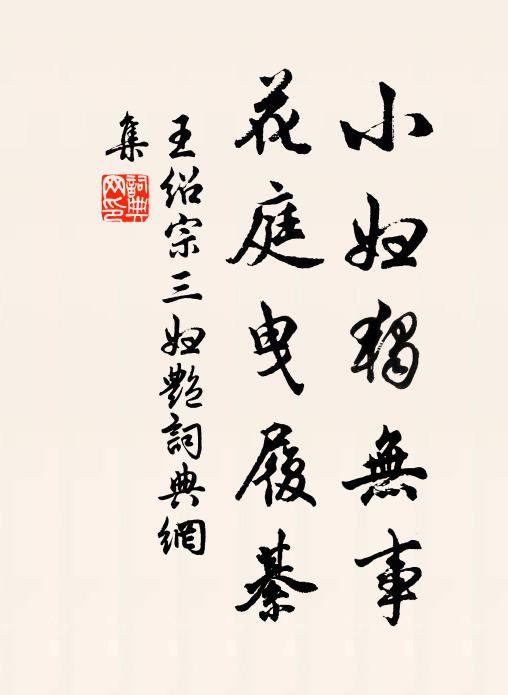 小妇獨無事
花庭曳履綦
王紹宗三妇艷詞典網
集
詞典網印